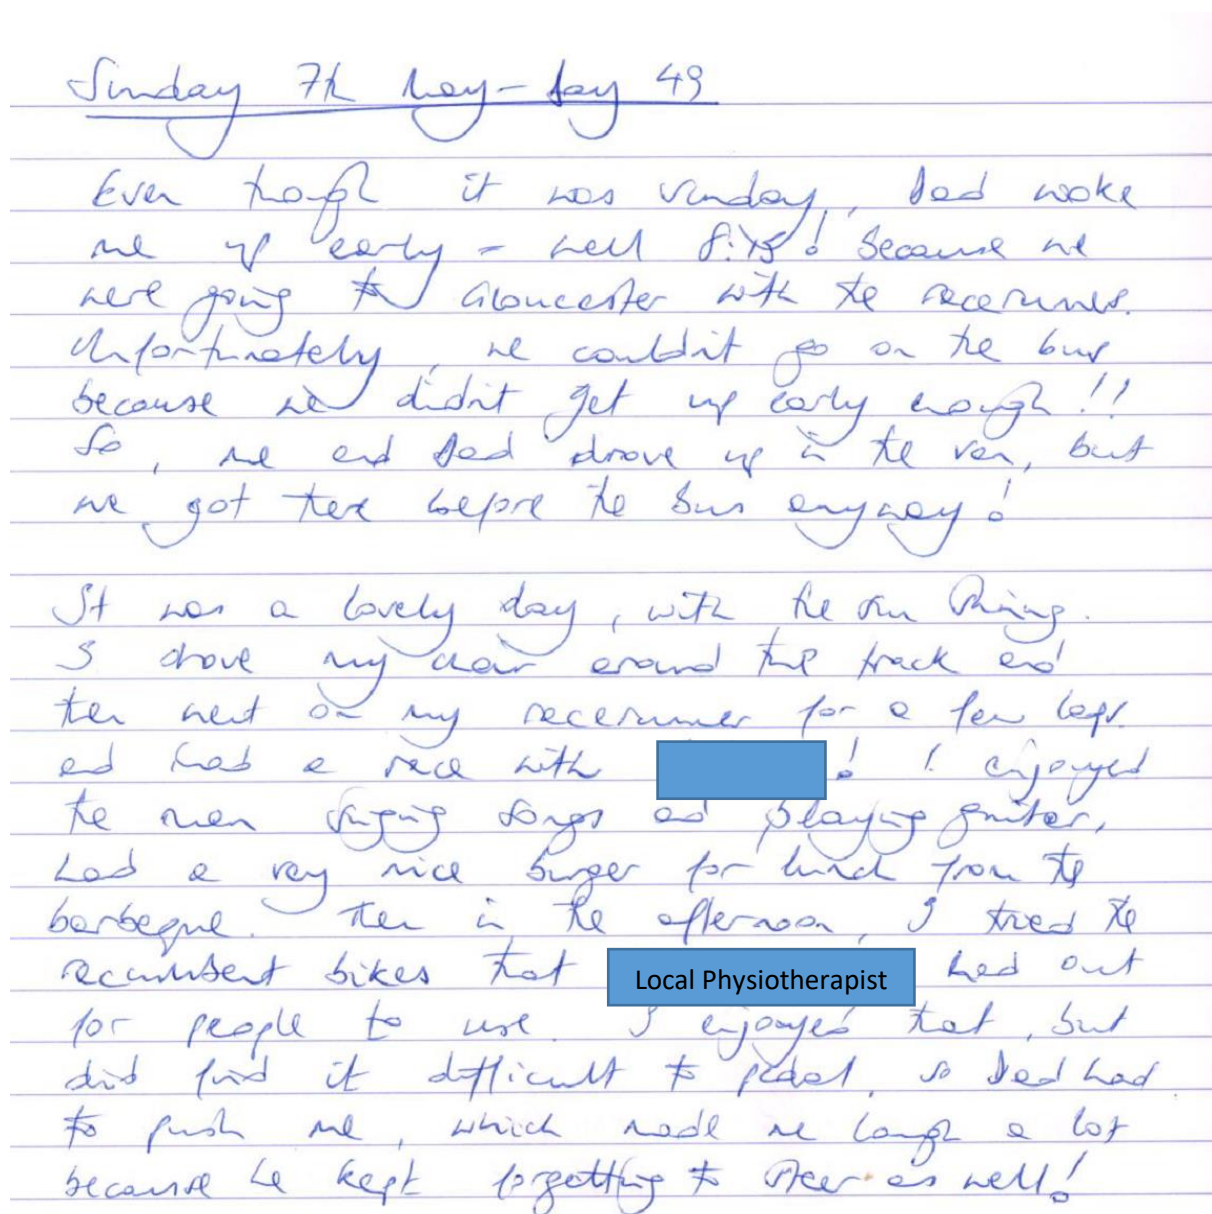 Sunday 7th May - Day 49
Even though it was Sunday, Dad woke
me up early - well 8:45! Because we
were going to Gloucester with the racerunners.
Unfortunately, we couldn't go on the bus
because we didn't get up early enough!!
So, me and Dad drove up in the van, but
we got there before the bus anyway!
It was a lovely day, with the sun shining.
I drove my chair around the track and
then went on my racerunner for a few laps.
and had a race with ! I enjoyed
the men singing songs and playing guitar,
had a very nice burger for lunch from the
barbeque. Then in the afternoon, I tried the
recumbent bikes that Local Physiotherapist had out
for people to use. I enjoyed that, but
did find it difficult to pedal, so Dad had
to push me, which made me laugh a lot
because he kept forgetting to steer as well!